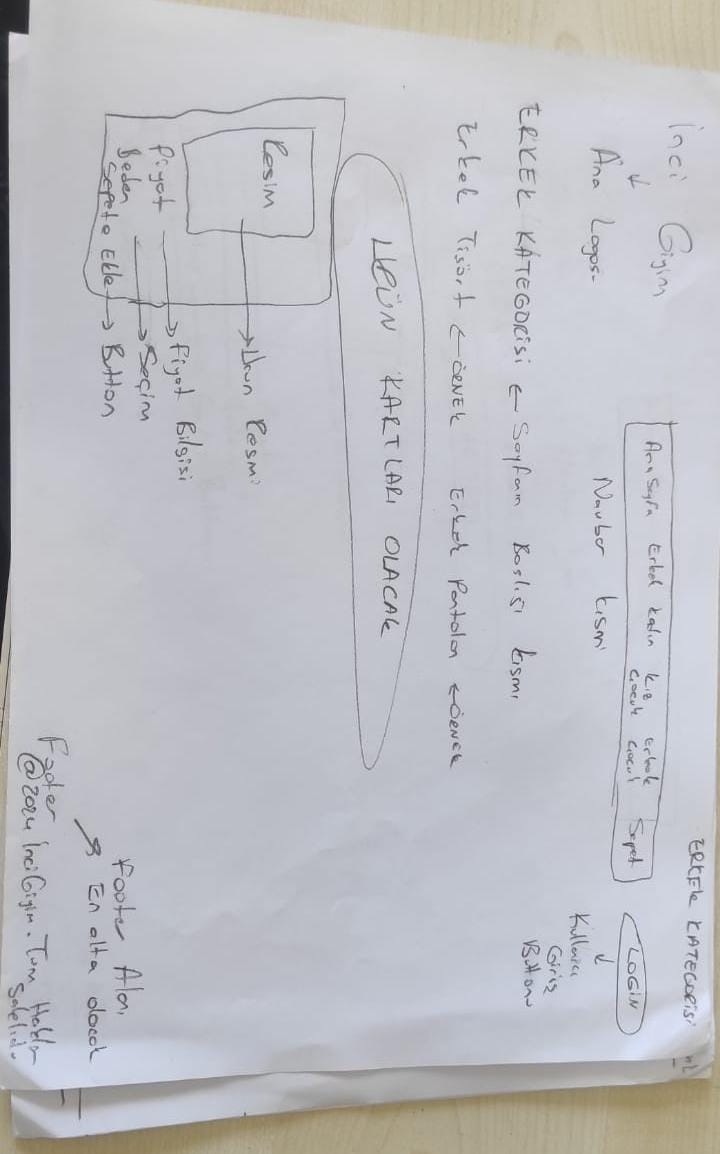 ERKEK KATEGORİSİ
İnci Giyim
Ana Sayfa Erkek Kadın Kız çocuk Erkek çocuk Sepet
LOGIN
Ana Logosu
Navbar kısmı
Kullanıcı Giriş Buttonu
ERKEK KATEGORİSİ ← Sayfanın Başlığı kısmı
Erkek Tişört ← ÖRNEK Erkek Pantolon ← ÖRNEK
ÜRÜN KARTLARI OLACAK
Resim → Ürün Resmi
Fiyat → Fiyat Bilgisi
Beden → Seçim
Sepete Ekle → Button
Footer Alanı
En alta olacak
Footer
@2024 İnci Giyim. Tüm Hakları
Saklıdır